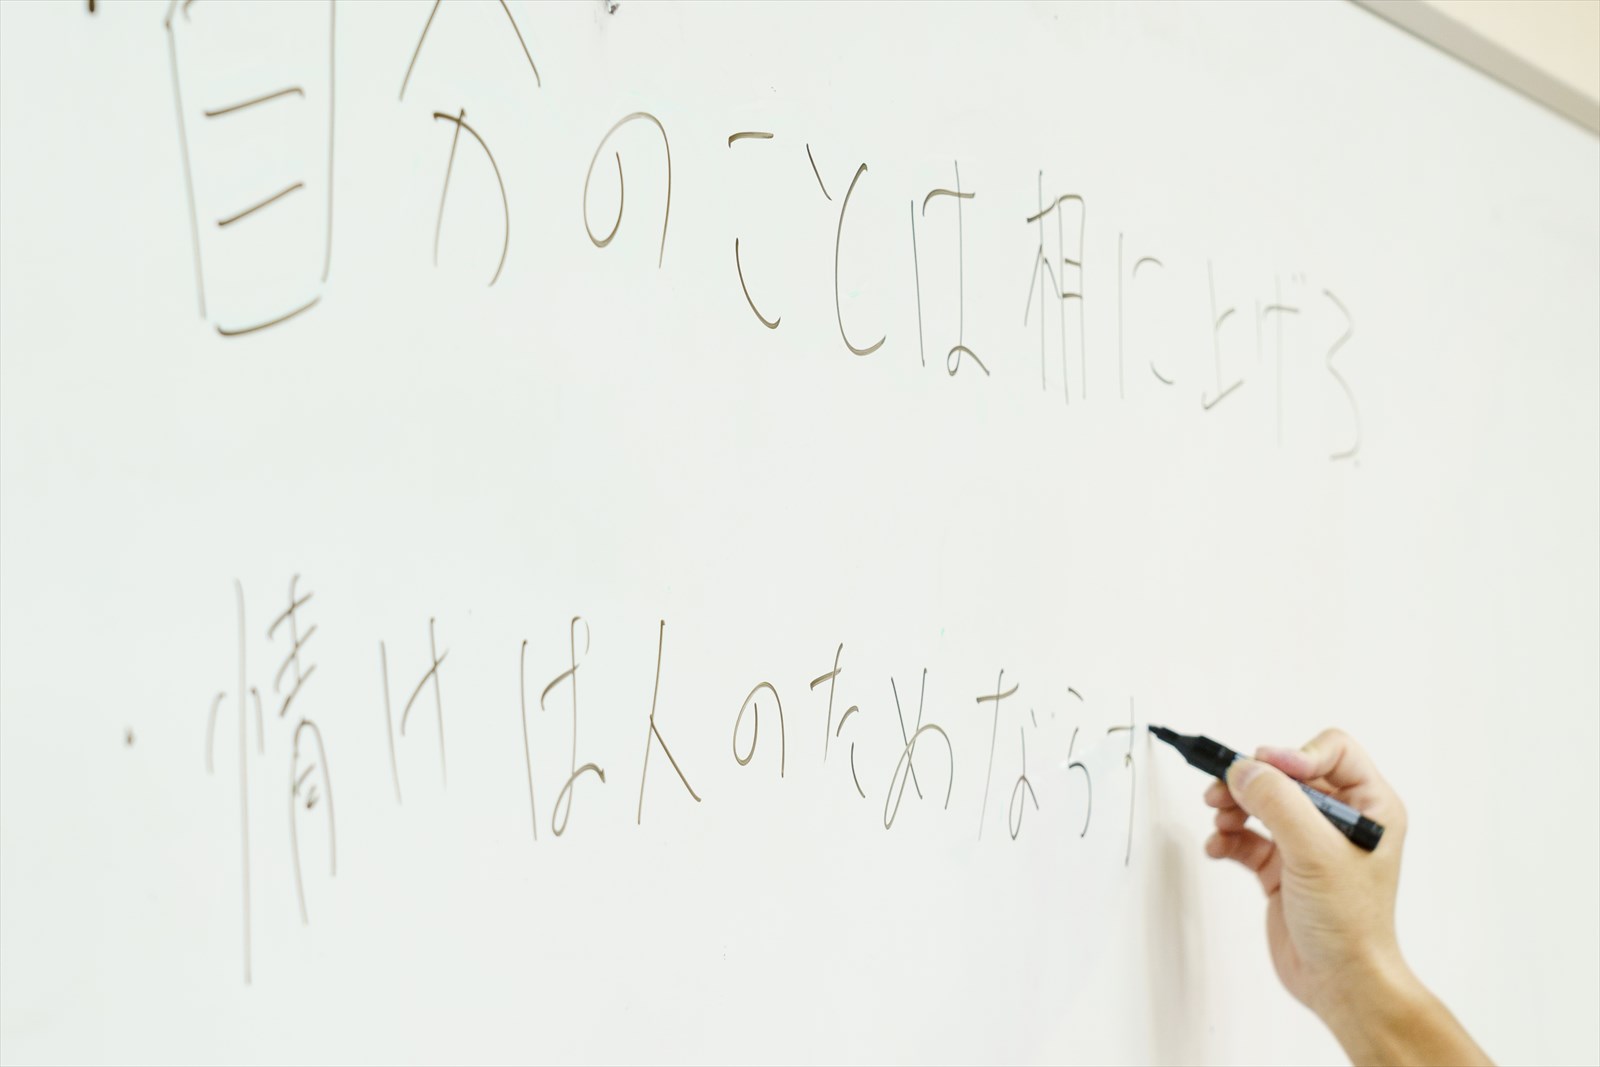 ・自分のことは相に上げる
・情けは人のためならす